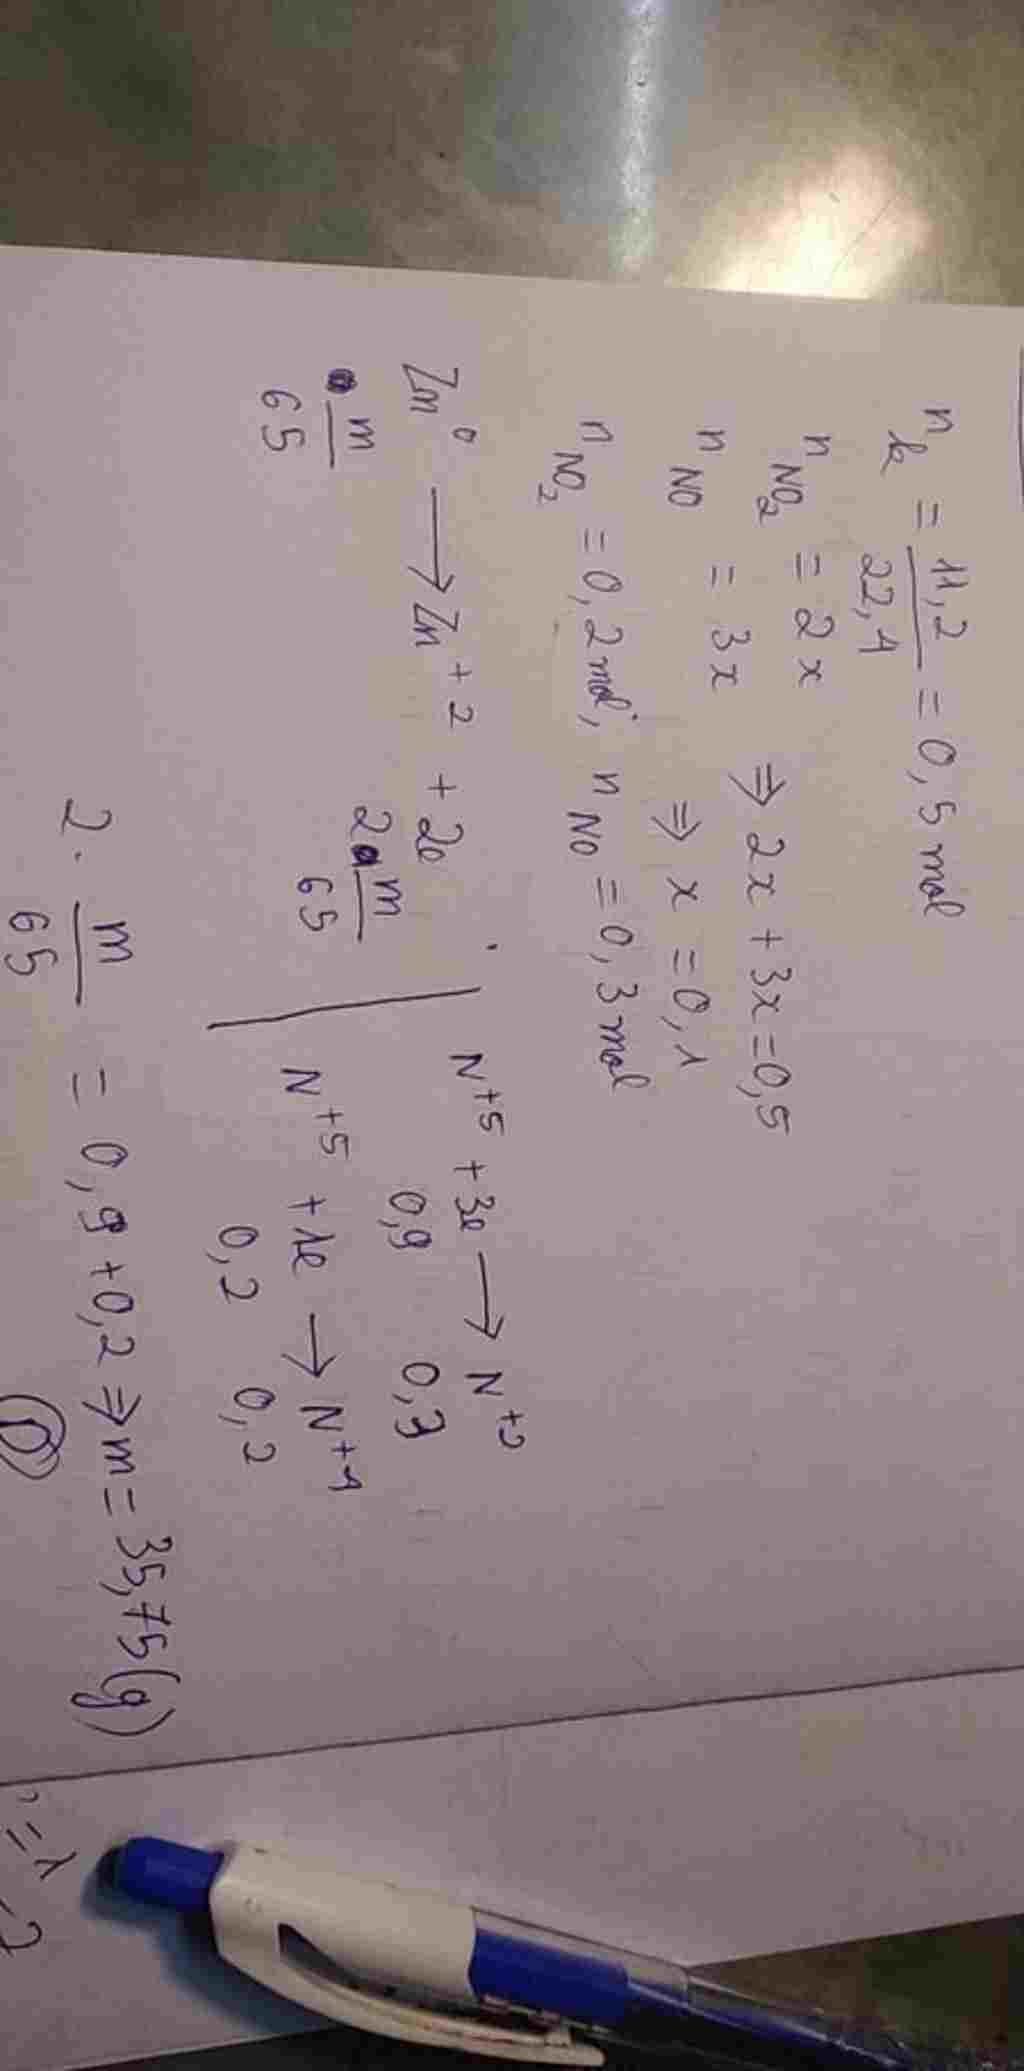 n k = 11,2 / 22,4 = 0,5 mol
n NO2 = 2x
n NO = 3x
⇒ 2x + 3x = 0,5
⇒ x = 0,1
n NO2 = 0,2 mol, n NO = 0,3 mol
Zn⁰ → Zn⁺² + 2e
m/65 2m/65
N⁺⁵ + 3e → N⁺²
0,9 0,3
N⁺⁵ + 1e → N⁺⁴
0,2 0,2
2. m/65 = 0,9 + 0,2 ⇒ m = 35,75 (g)
D